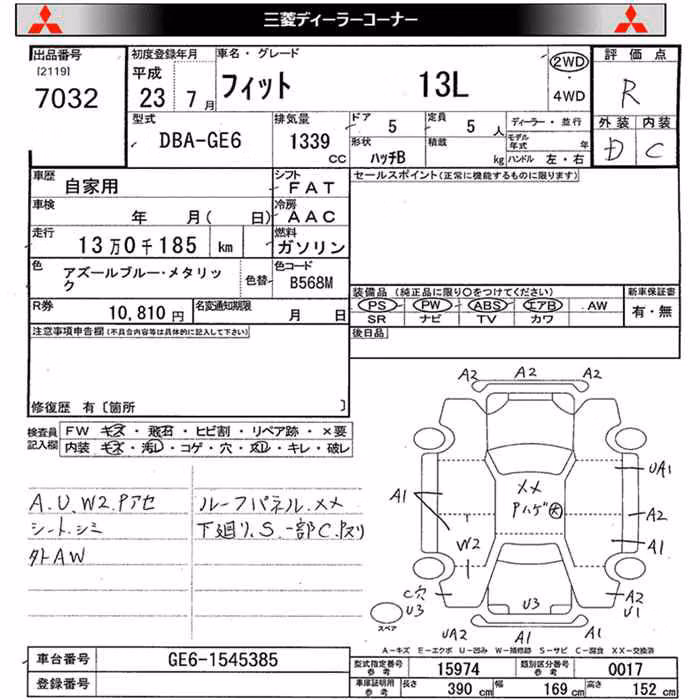 三菱ディーラーコーナー
出品番号
[2119]
7032
初度登録年月
平成
23 7月
車名・グレード
フィット 13L
2WD
4WD
評価点
R
外装 内装
D C
型式
DBA-GE6
排気量
1339
CC
ドア 5
定員 5 人
ディーラー・並行
形状 ハッチB
積載 kg
モデル年式 年
ハンドル 左・右
車歴 自家用
シフト FAT
セールスポイント(正常に機能するものに限ります)
車検 年 月( 日)
冷房 AAC
走行 13万0千185 km
燃料 ガソリン
色 アズールブルー・メタリック
色替
色コード B568M
装備品 (純正品に限り○をつけてください)
新車保証書
PS PW ABS エアB AW
SR ナビ TV カワ
有・無
R券 10,810円
名変通知期限 月 日
後日品
注意事項申告欄(不具合内容等は具体的に記入して下さい)
修復歴 有 [箇所 ]
検査員記入欄
FW キズ・飛石・ヒビ割・リペア跡・×要
内装 キズ・汚レ・コゲ・穴・スレ・キレ・破レ
A.U.W2.Pアセ
シート.シミ
外AW
ルーフパネル.××
下廻り.S.一部C.Pスリ
A2 A2 A2
UA1
A1
××
Pハゲ大
A2
W2
A1
C穴
U3
U3
A2
U1
UA2 A1 A1
スペア
A-キズ E-エクボ U-凹み W-補修跡 S-サビ C-腐食 XX-交換済
車台番号 GE6-1545385
登録番号
型式指定番号 参考 15974
類別区分番号 参考 0017
車庫証明用 参考 長さ 390 cm 幅 169 cm 高さ 152 cm